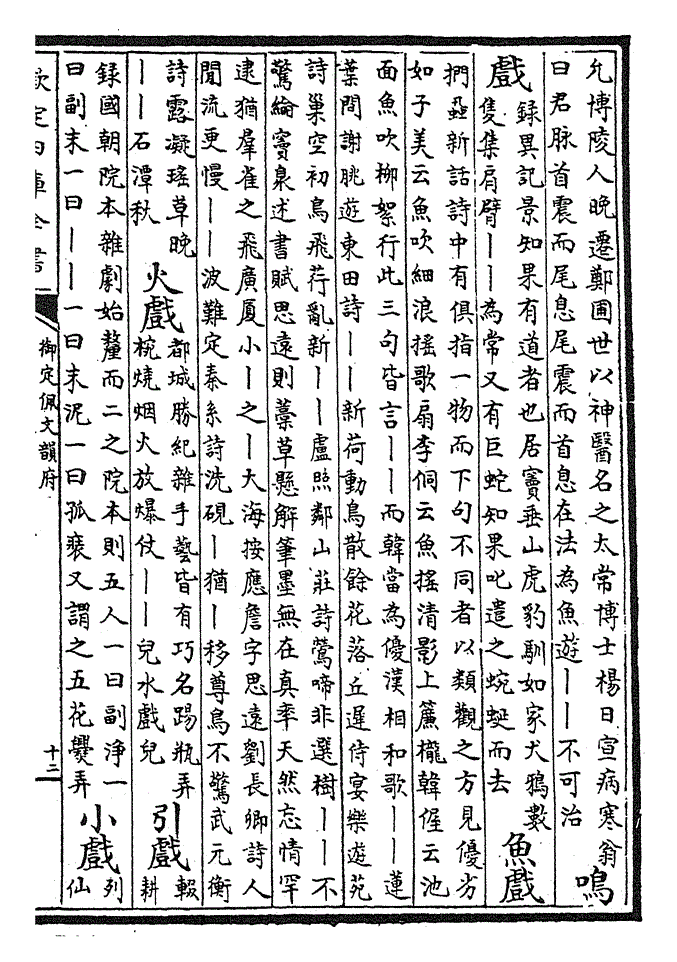 允博陵人晚遷鄭圃世以神醫名之太常博士楊日宣病寒翁
曰君脉首震而尾息尾震而首息在法為魚遊丨丨不可治
鳴
戲
録異記景知果有道者也居竇垂山虎豹馴如家犬鴉數
隻集肩臂丨丨為常又有巨蛇知果叱遣之蜿蜒而去
魚戲
捫蝨新話詩中有俱指一物而下句不同者以類觀之方見優劣
如子美云魚吹細浪搖歌扇李侗云魚搖清影上簾櫳韓偓云池
面魚吹柳絮行此三句皆言丨丨而韓當為優漢相和歌丨丨蓮
葉間謝朓遊東田詩丨丨新荷動鳥散餘花落丘遲侍宴樂遊苑
詩巢空初鳥飛荇亂新丨丨盧照鄰山莊詩鶯啼非選樹丨丨不
驚綸竇泉述書賦思遠則藁草懸解筆墨無在真率天然忘情罕
逮猶羣雀之飛廣厦小丨之丨大海按應詹字思遠劉長卿詩人
閒流更慢丨丨波難定秦系詩洗硯丨猶丨移尊鳥不驚武元衡
詩露凝瑤草晚
丨丨石潭秋
火戲
都城勝紀雜手藝皆有巧名踢瓶弄
椀燒烟火放爆仗丨丨兒水戲兒
引戲
輟
耕
録國朝院本雜劇始釐而二之院本則五人一曰副淨一
曰副末一曰丨丨一曰末泥一曰孤裝又謂之五花爨弄
小戲
列
仙
欽定四庫全書
御定佩文韻府
十二